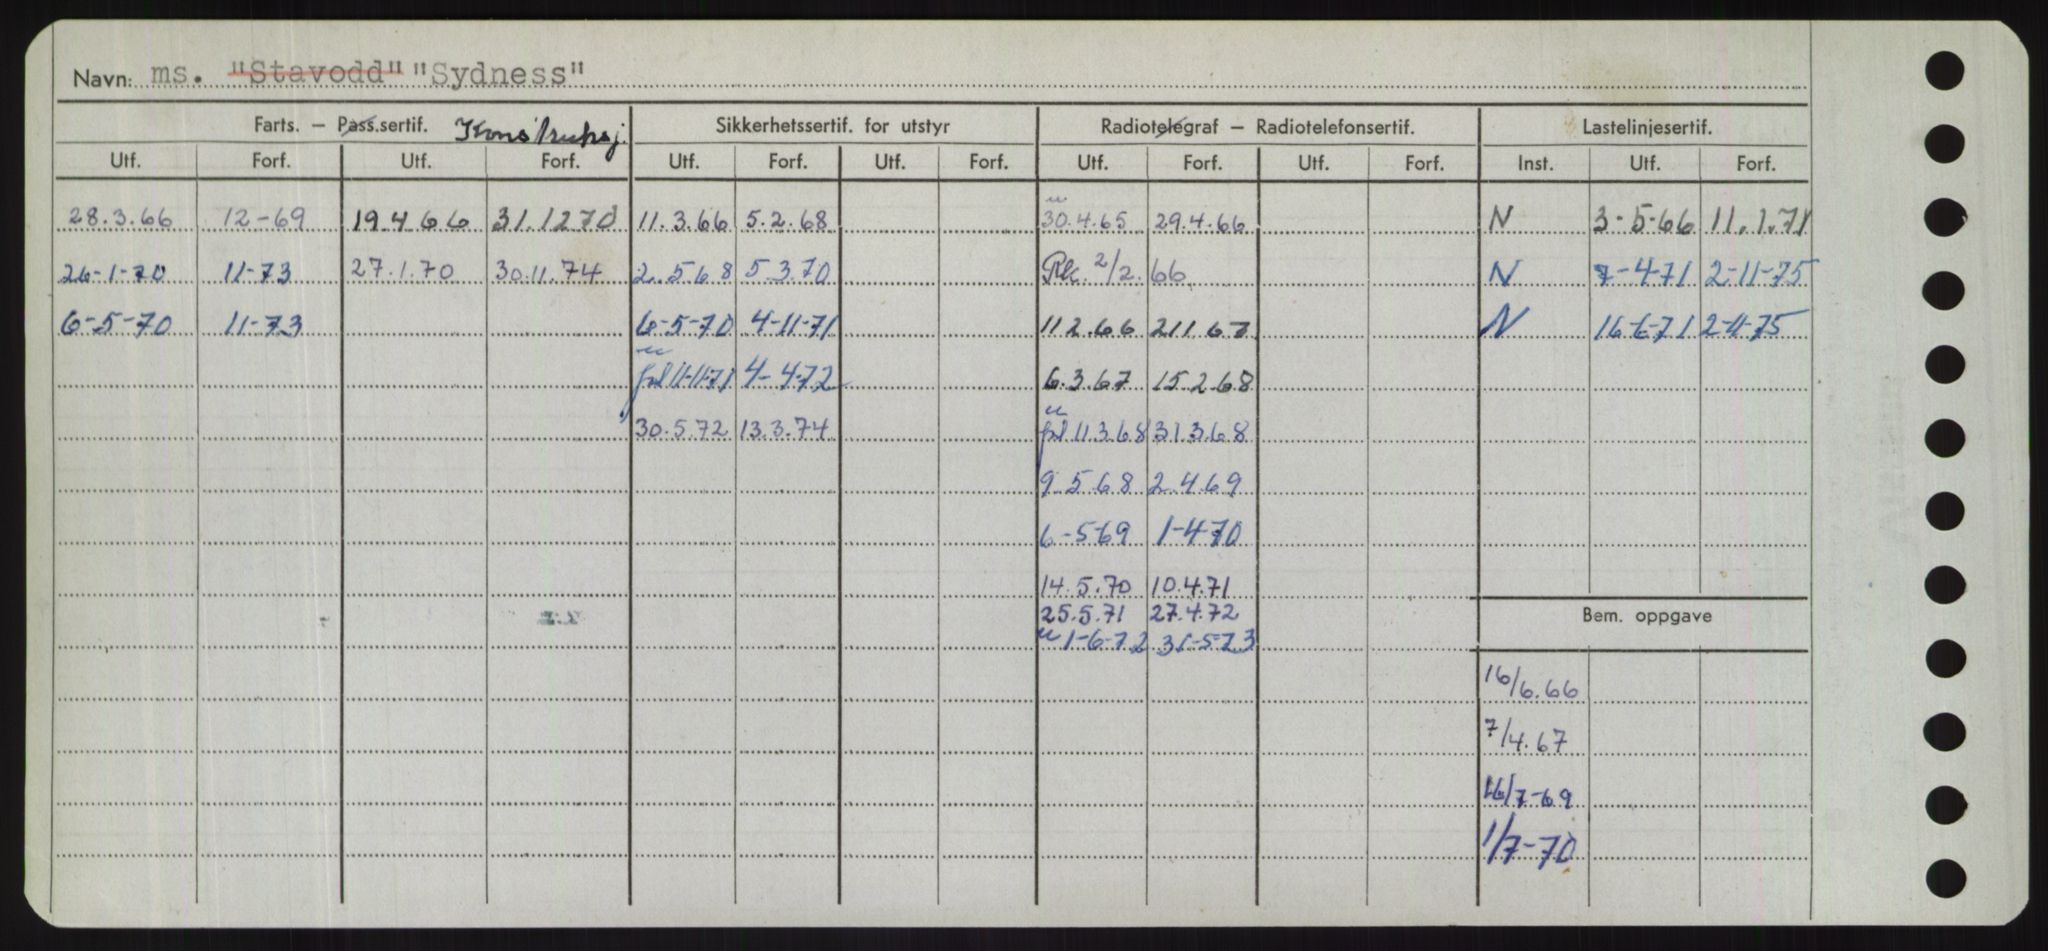 Navn: ms. "Stavodd" "Sydness"
Farts. — Pass.sertif. Sikkerhetssertif. for utstyr Radiotelegraf — Radiotelefonsertif. Lastelinjesertif.
Utf. Forf. Utf. Forf. Utf. Forf. Utf. Forf. Utf. Forf. Utf. Forf. Inst. Utf. Forf.
28.3.66 12-69 19 4 66 31.12 70 11.3.66 5.2.68 30.4.65 29.4.66 N 3-5-66 11.1.71
26-1-70 11-73 27.1.70 30.11.74 2.5 68 5 3.70 2/2.66 N 7-4-71 2-11-75
6-5-70 11-73 6-5-70 4-11-71 11 2.66 2 11 67 N 16-6-71 2-11-75
11-11-71 4-4-72 6.3.67 15 2.68
30.5.72 13.3.74 11 3.68 31 3.68
9 5.68 2.4.69
6-5-69 1-4-70
14.5.70 10.4.71
25.5.71 27.4.72
1-6-72 31-5-73
Bem. oppgave
16/6.66
7/4.67
16/7-69
1/7-70